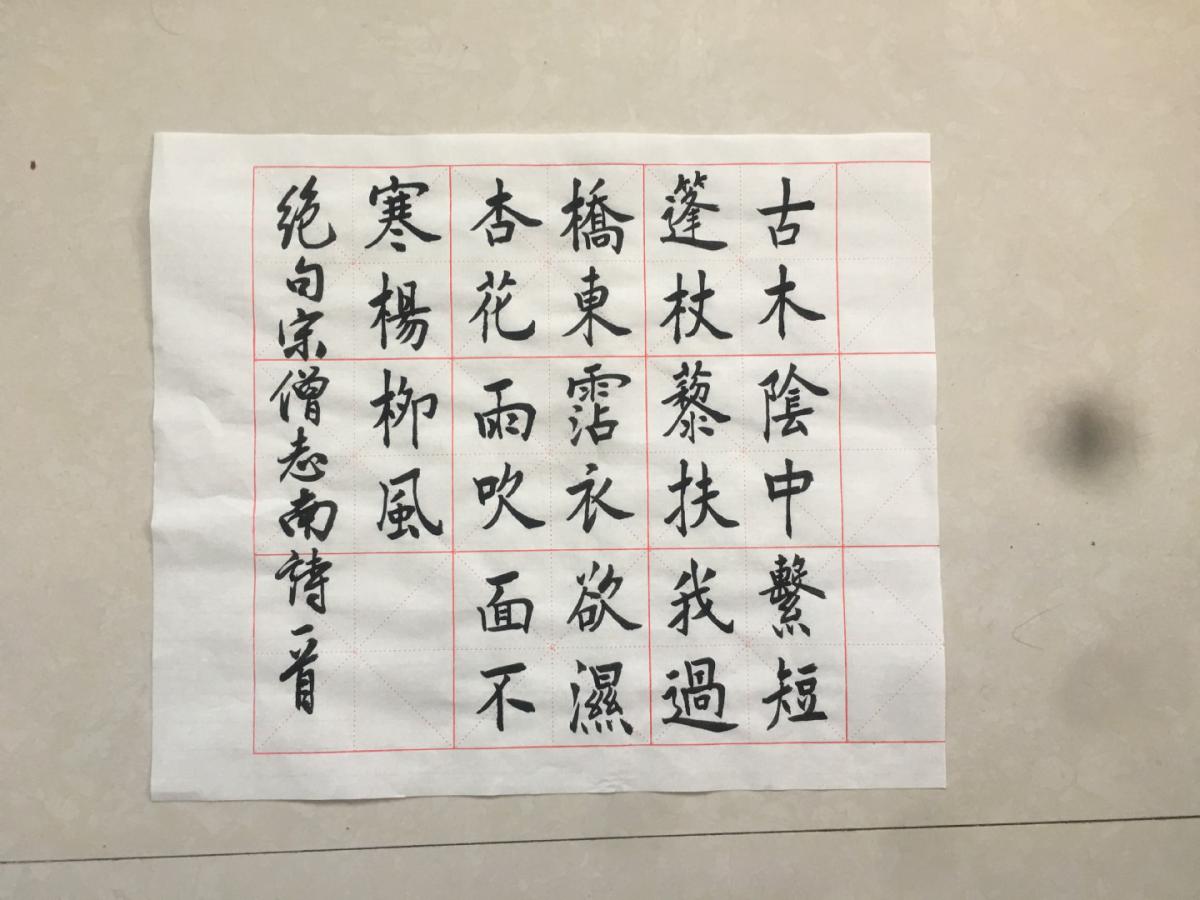 古木陰中繫短
篷杖藜扶我過
橋東霑衣欲濕
杏花雨吹面不
寒楊柳風
绝句宗僧志南詩一首